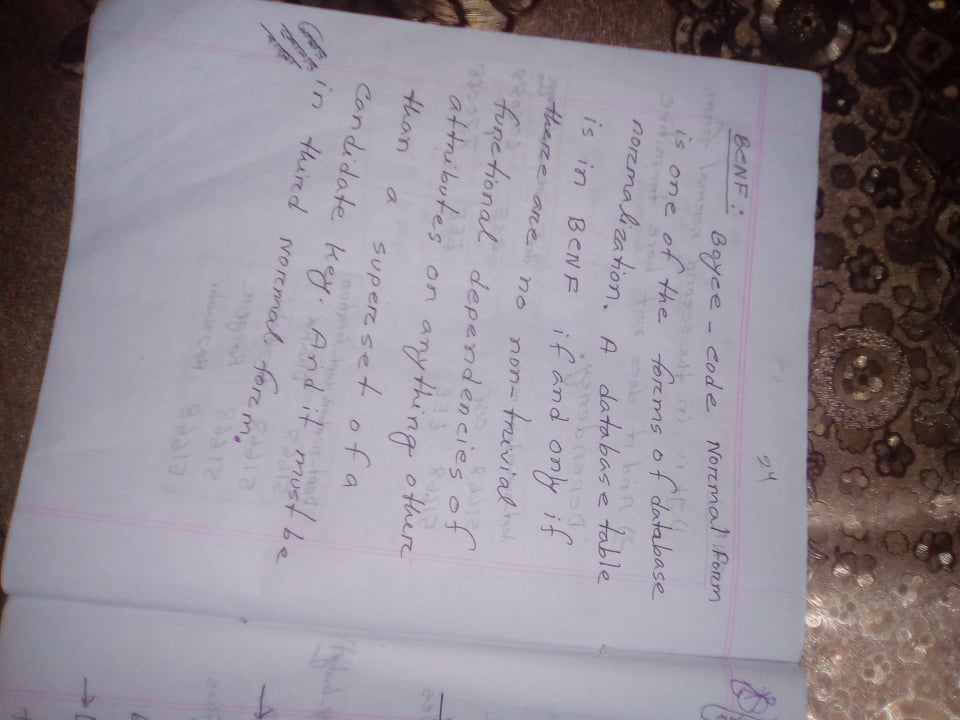 24
BCNF:
Boyce - code Normal Form
is one of the forms of database
normalization. A database table
is in BCNF if and only if
there are no non-trivial
functional dependencies of
attributes on anything other
than a superset of a
candidate key. And it must be
in third Normal form.